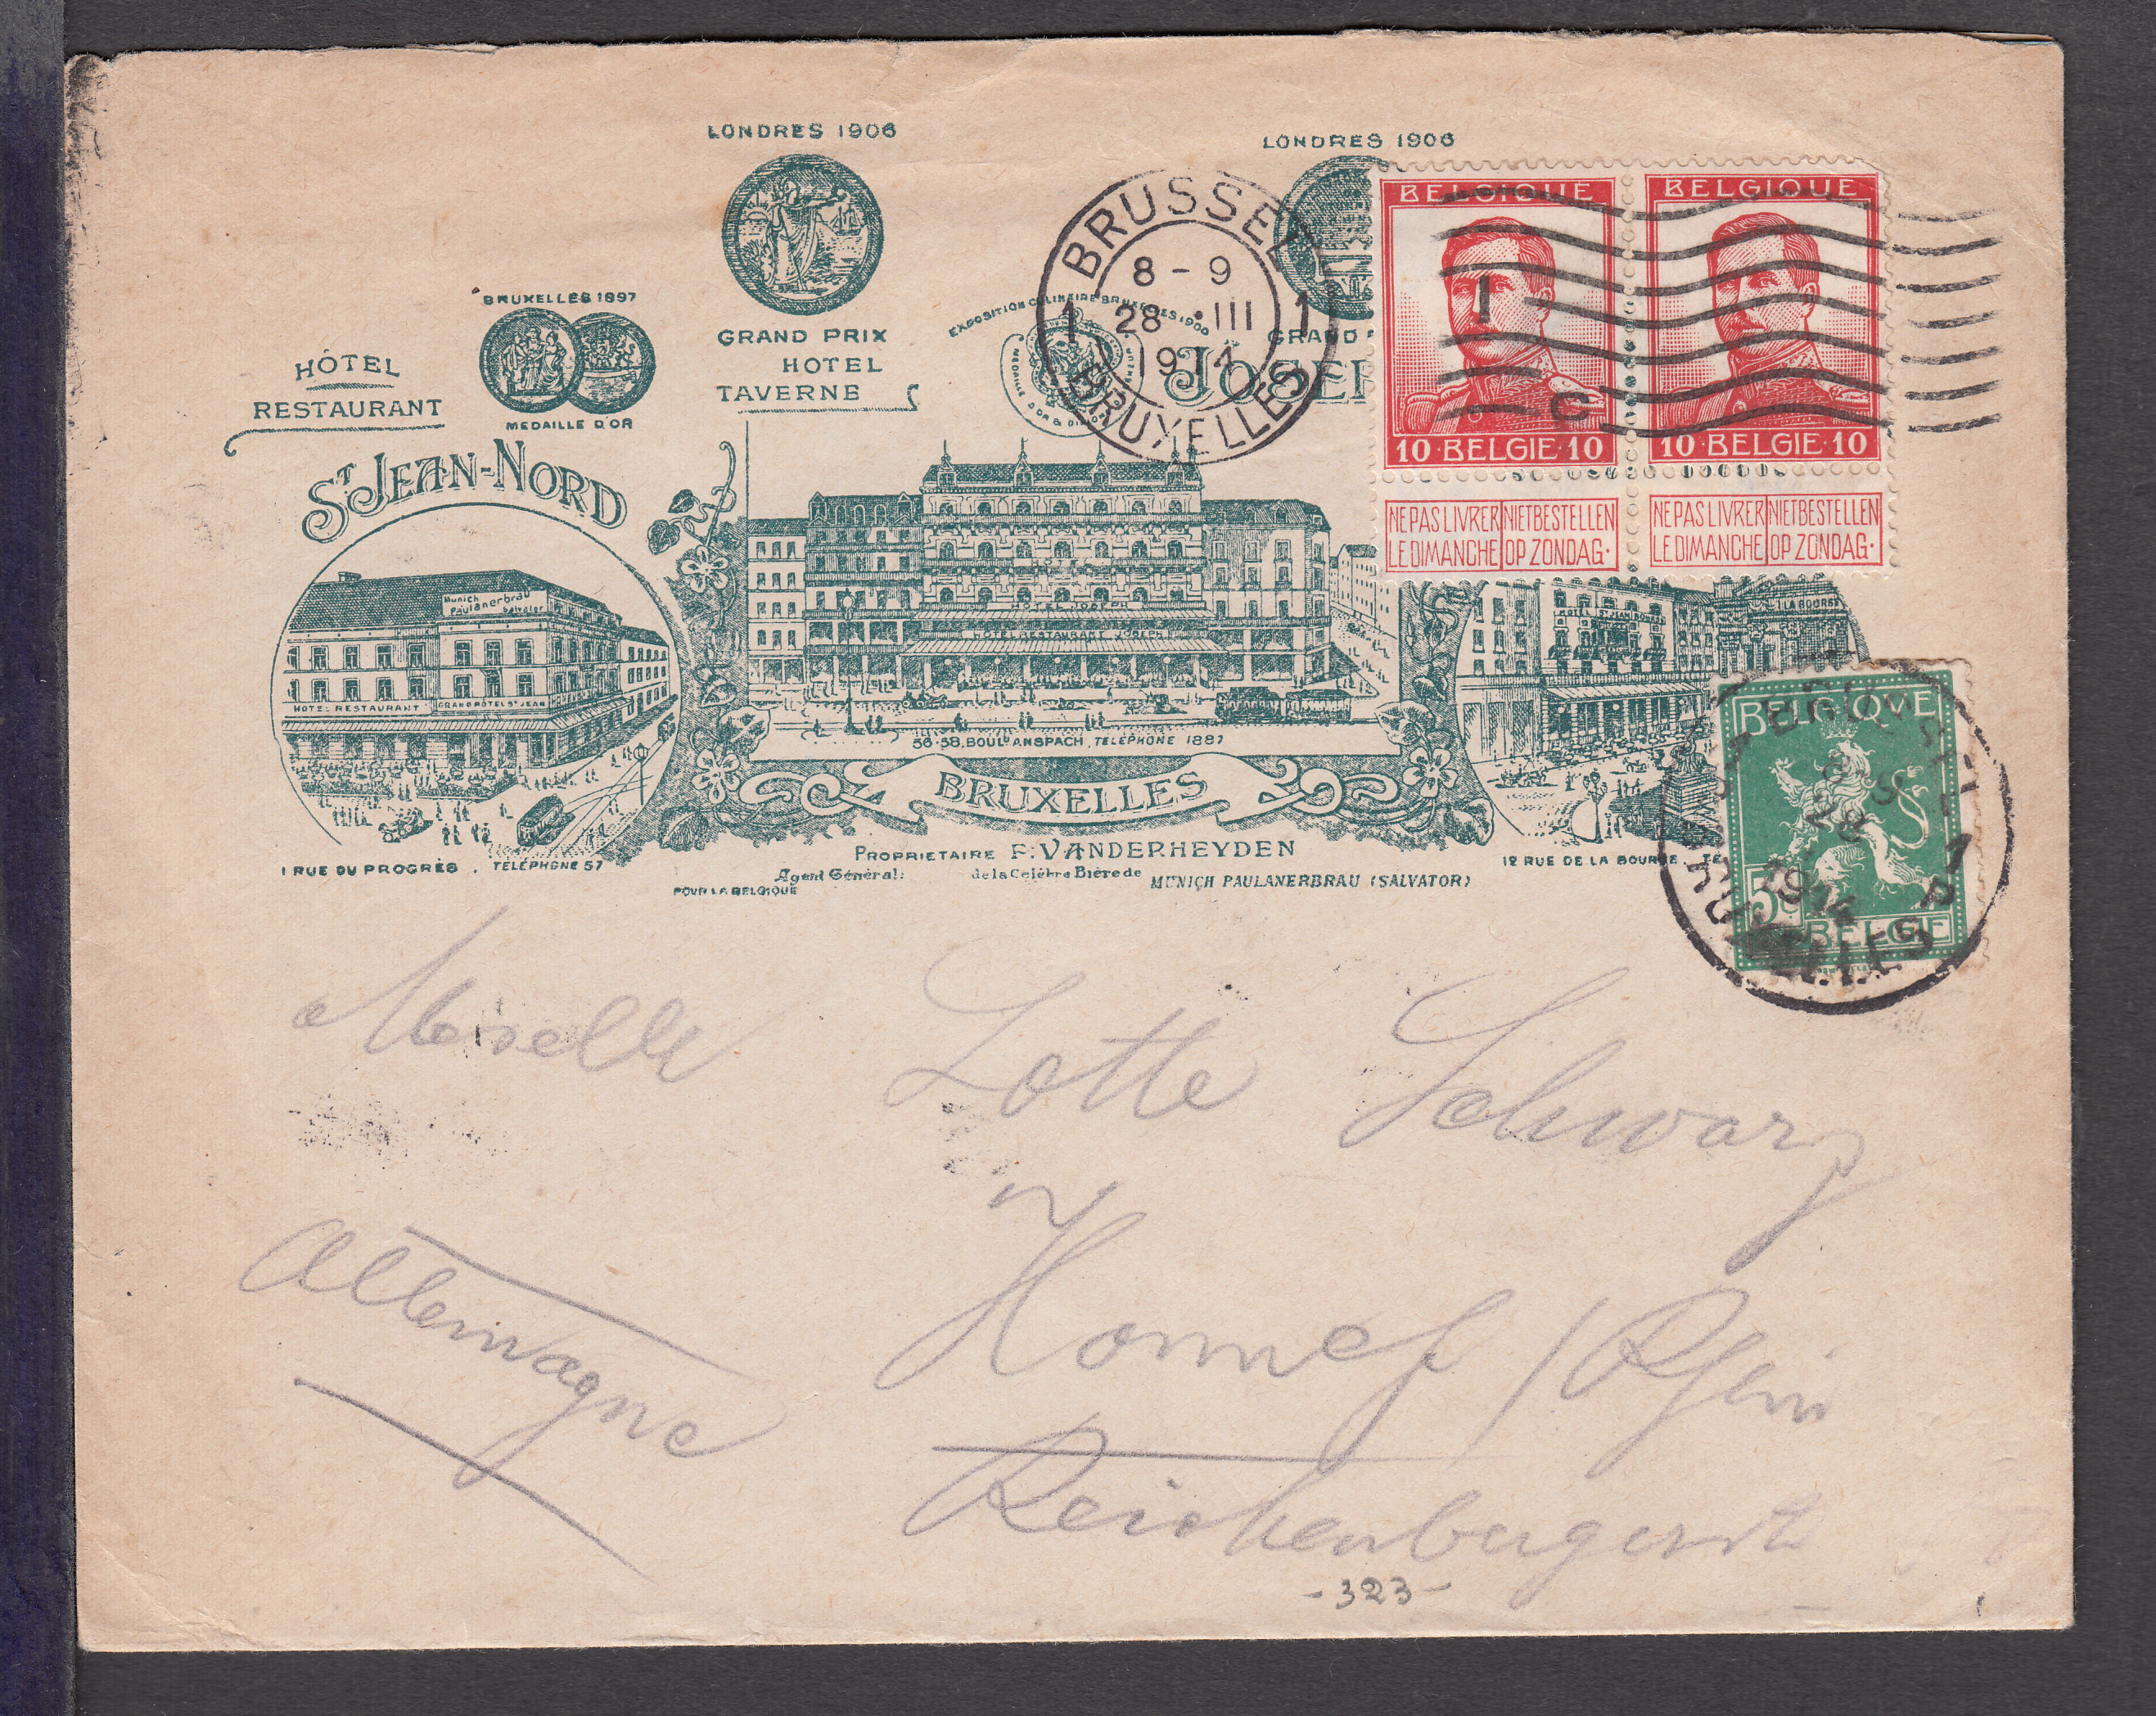 LONDRES 1906
GRAND PRIX
HOTEL
TAVERNE
LONDRES 1906
GRAND
JOSEP
BRUXELLES 1897
MEDAILLE D'OR
HÔTEL
RESTAURANT
ST JEAN-NORD
EXPOSITION CULINAIRE BRUXELLES 1900
BRUSSEL
8 - 9
1 28 · III 1
1914
BRUXELLES
BELGIQUE
10 · BELGIE · 10
NE PAS LIVRER LE DIMANCHE
NIET BESTELLEN OP ZONDAG ·
BELGIQUE
10 · BELGIE · 10
NE PAS LIVRER LE DIMANCHE
NIET BESTELLEN OP ZONDAG ·
Munich
Paulanerbrau
Salvator
HOTEL RESTAURANT
GRAND HÔTEL ST JEAN
1 RUE DU PROGRÈS . TELÉPHONE 57
HOTEL JOSEPH
HOTEL RESTAURANT JOSEPH
56-58, BOULD ANSPACH, TELÉPHONE 1887
BRUXELLES
LA BOURSE
12 RUE DE LA BOURSE . TE
PROPRIETAIRE F. VANDERHEYDEN
Agent Général: de la Celèbre Bière de MUNICH PAULANERBRAU (SALVATOR)
POUR LA BELGIQUE
BELGIQUE
5c
BELGIE
BRUSSEL 1
8-9
28
1914
BRUXELLES
Melle Lotte Schwarz
Allemagne
Honnef / Rhein
Reichenbergerstr
- 323 -